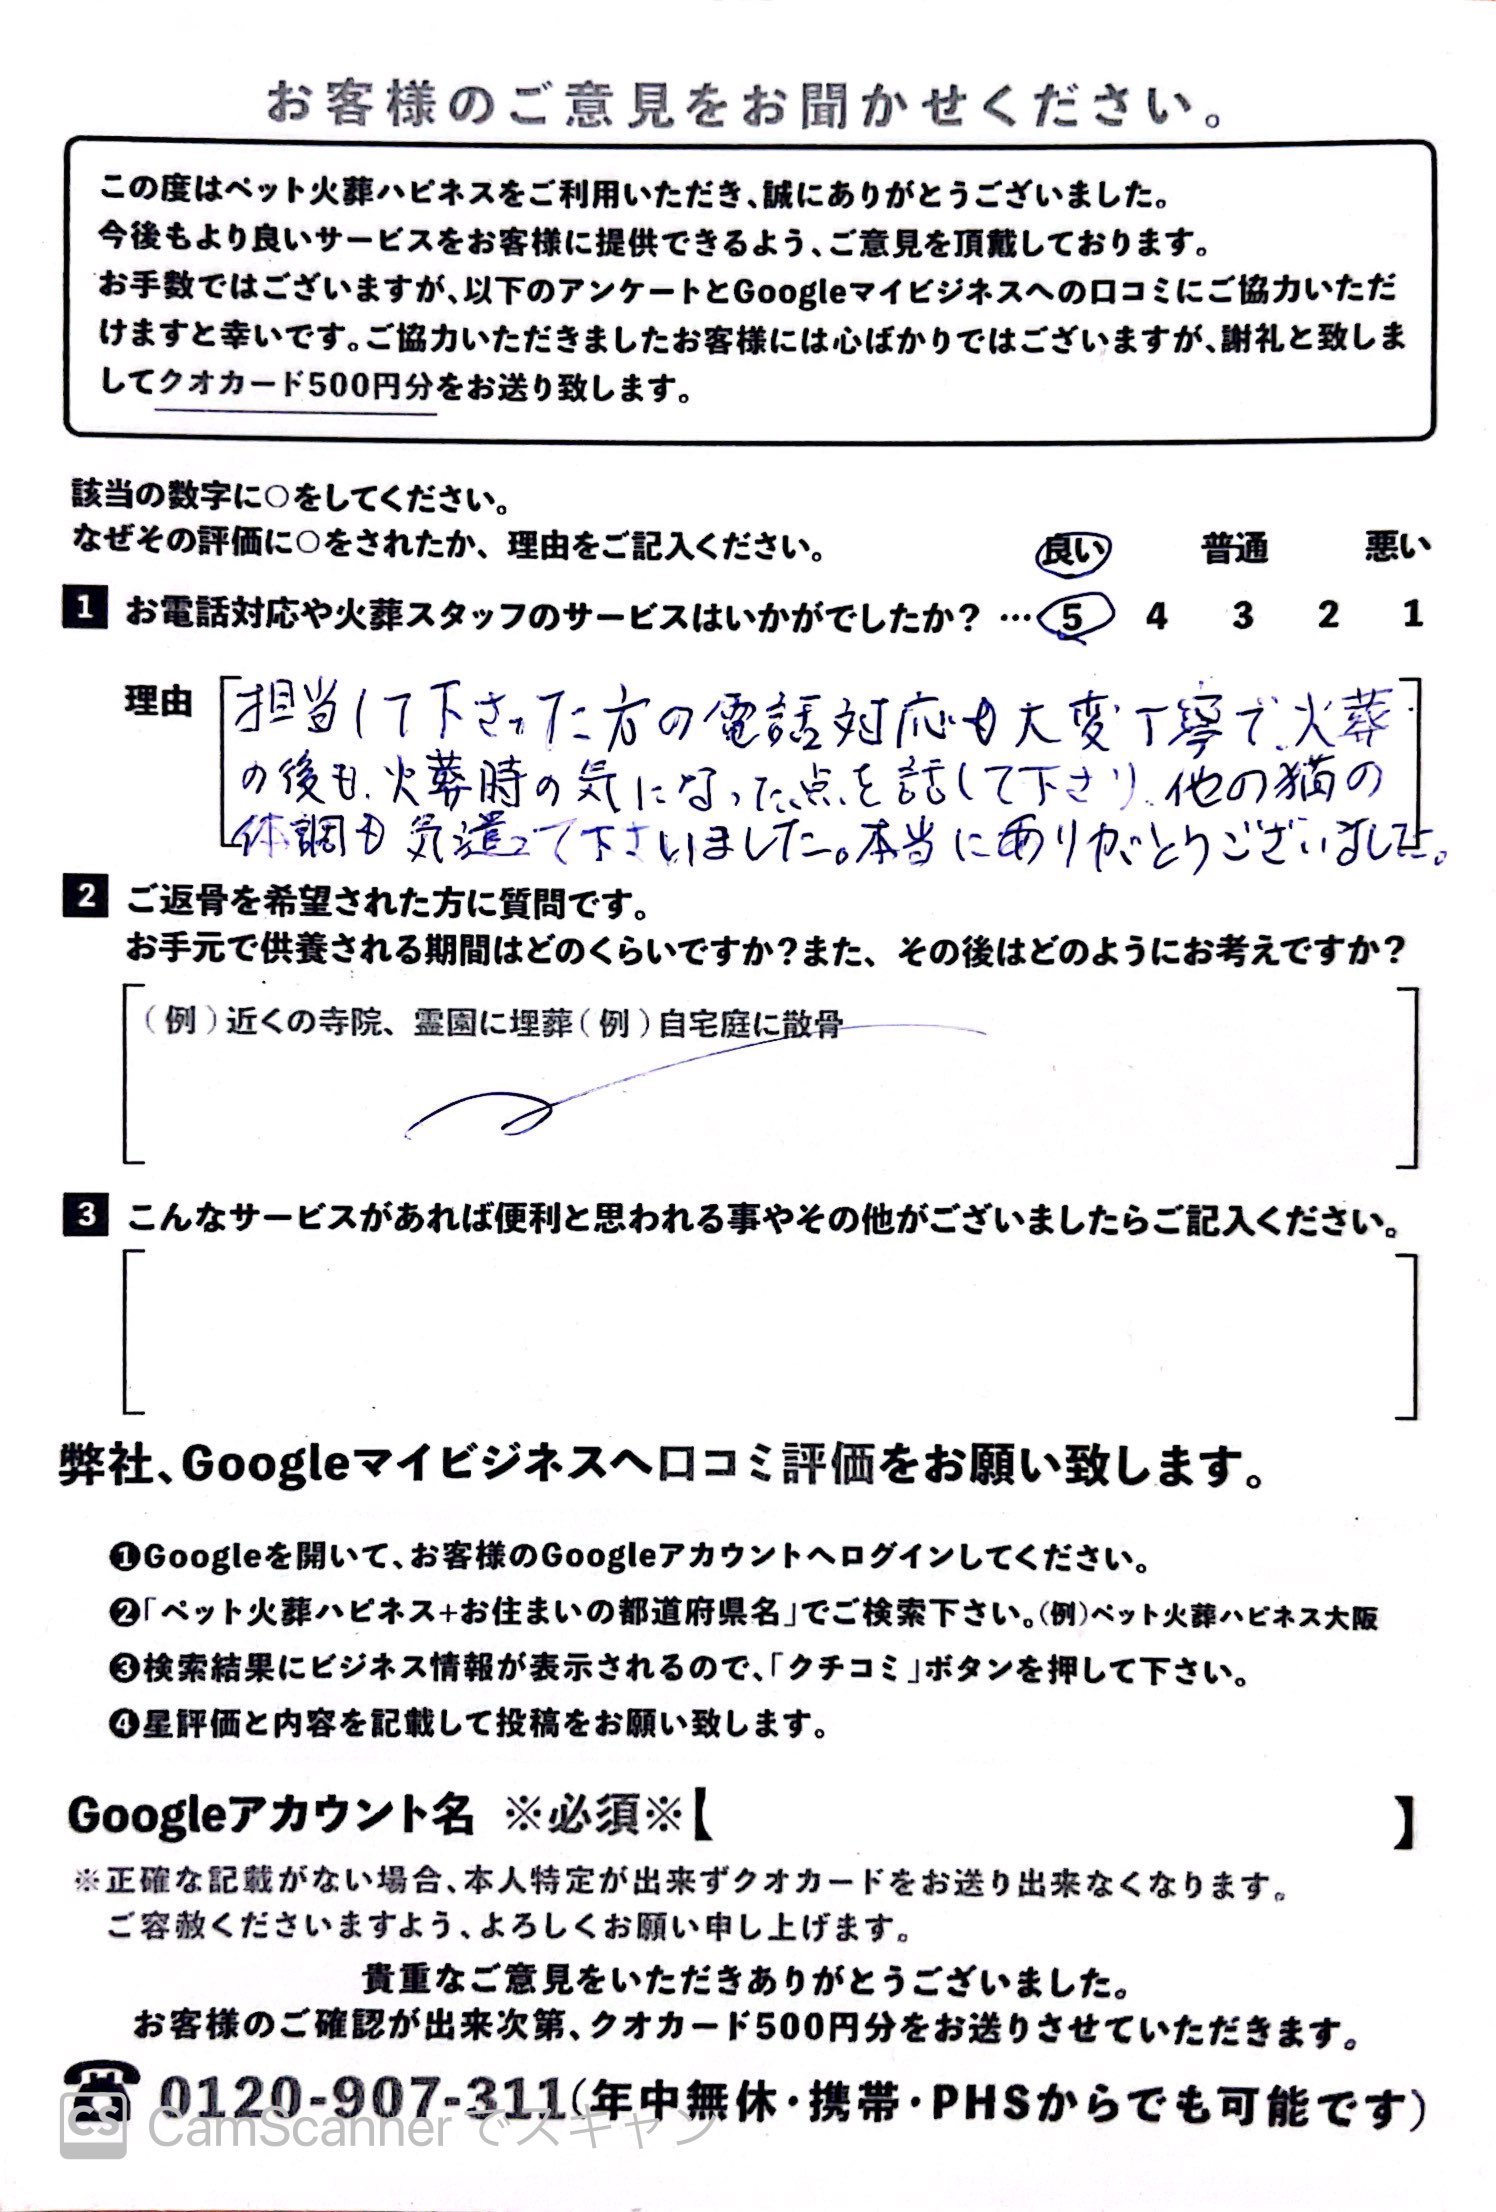 お客様のご意見をお聞かせください。
この度はペット火葬ハピネスをご利用いただき、誠にありがとうございました。
今後もより良いサービスをお客様に提供できるよう、ご意見を頂戴しております。
お手数ではございますが、以下のアンケートとGoogleマイビジネスへの口コミにご協力いただ
けますと幸いです。ご協力いただきましたお客様には心ばかりではございますが、謝礼と致しま
してクオカード500円分をお送り致します。
該当の数字に○をしてください。
なぜその評価に○をされたか、理由をご記入ください。 良い 普通 悪い
1 お電話対応や火葬スタッフのサービスはいかがでしたか？ …5 4 3 2 1
理由 担当して下さった方の電話対応も大変丁寧で、火葬
の後も、火葬時の気になった点を話して下さり、他の猫の
体調も気遣って下さいました。本当にありがとうございました。
2 ご返骨を希望された方に質問です。
お手元で供養される期間はどのくらいですか？また、その後はどのようにお考えですか？
（例）近くの寺院、霊園に埋葬（例）自宅庭に散骨
3 こんなサービスがあれば便利と思われる事やその他がございましたらご記入ください。
弊社、Googleマイビジネスへ口コミ評価をお願い致します。
❶Googleを開いて、お客様のGoogleアカウントへログインしてください。
❷「ペット火葬ハピネス+お住まいの都道府県名」でご検索下さい。（例）ペット火葬ハピネス大阪
❸検索結果にビジネス情報が表示されるので、「クチコミ」ボタンを押して下さい。
❹星評価と内容を記載して投稿をお願い致します。
Googleアカウント名 ※必須※【 】
※正確な記載がない場合、本人特定が出来ずクオカードをお送り出来なくなります。
ご容赦くださいますよう、よろしくお願い申し上げます。
貴重なご意見をいただきありがとうございました。
お客様のご確認が出来次第、クオカード500円分をお送りさせていただきます。
☎ 0120-907-311（年中無休・携帯・PHSからでも可能です）
CS CamScanner でスキャン